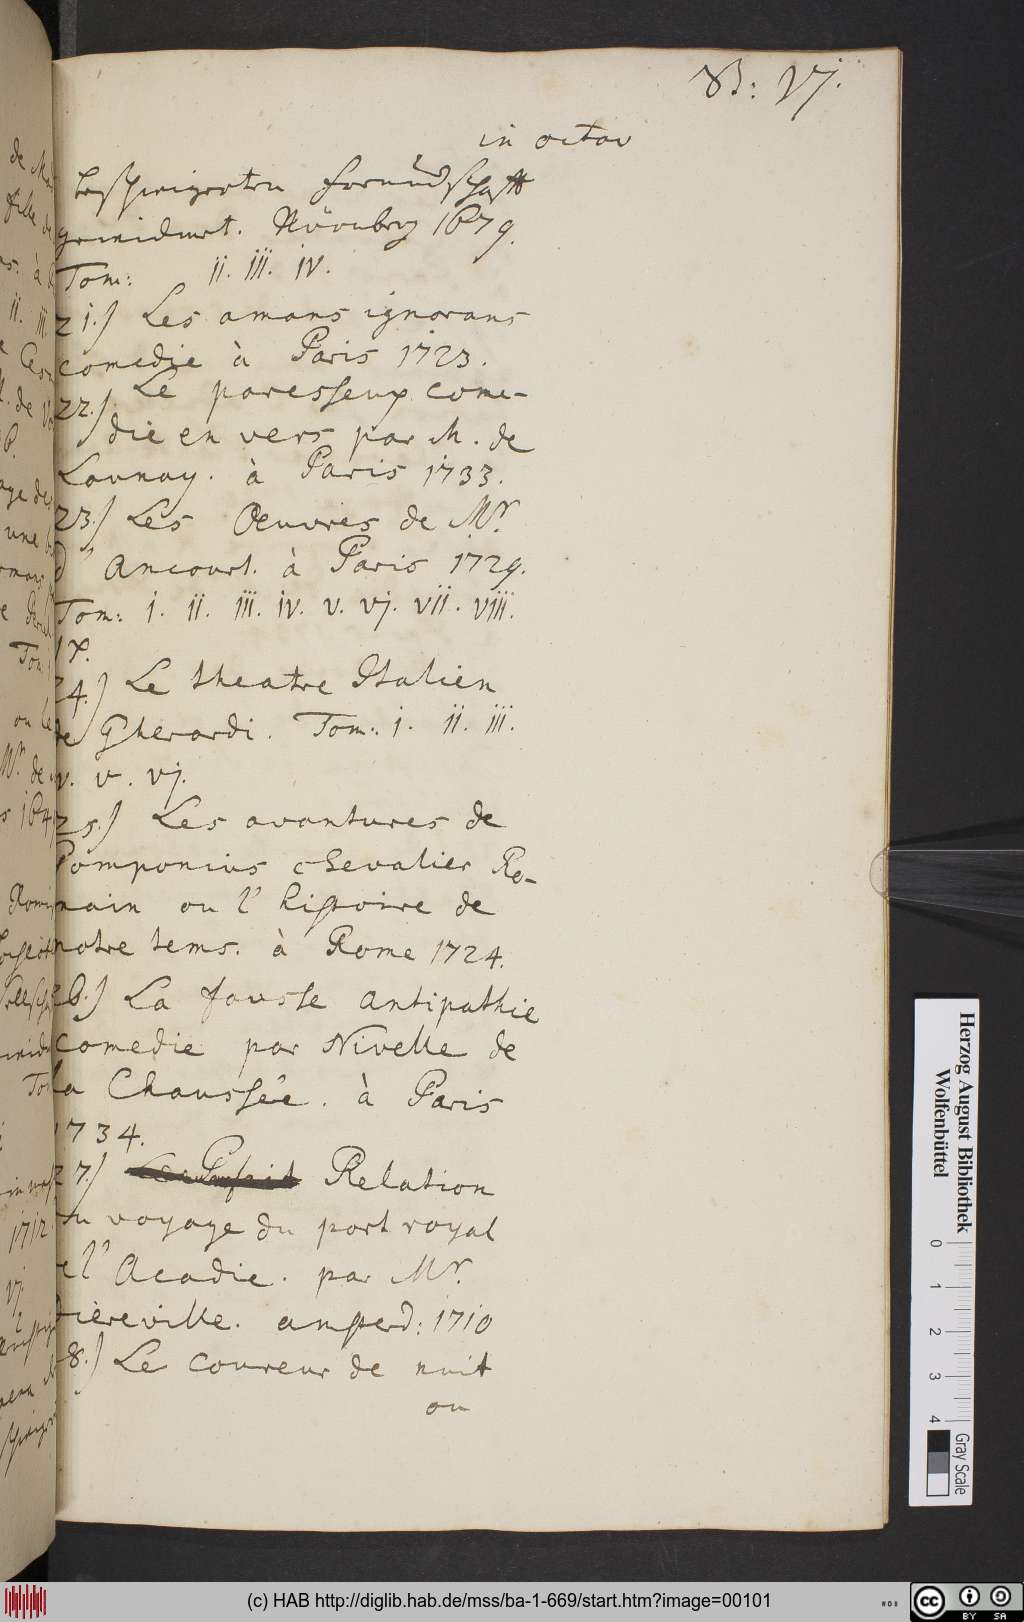 B: Vj.
in octav
beschweigerten freundschafft
gewidmet. Nürnberg 1679.
Tom: ii. iii. iv.
21.) Les amans ignorans
comedie à Paris 1723.
22.) Le paresseux come-
die en vers par M. de
Launay. à Paris 1733.
23.) Les Oeuvres de Mr.
d'ancourt. à Paris 1729.
Tom: i. ii. iii. iv. v. vj. vii. viii.
ix.
24.) Le theatre Italien
de Gherardi. Tom: i. ii. iii.
iv. v. vj.
25.) Les avantures de
Pomponius chevalier Ro-
main ou l'histoire de
notre tems. à Rome 1724.
26.) La fausse antipathie
comedie par Nivelle de
la Chaussée. à Paris
1734.
27.) Relation
du voyage du port royal
de l'Acadie. par Mr.
Dièreville. amsterd: 1710
28.) Le coureur de nuit
ou
Herzog August Bibliothek
Wolfenbüttel
0 1 2 3 4
Gray Scale
(c) HAB http://diglib.hab.de/mss/ba-1-669/start.htm?image=00101
cc BY SA